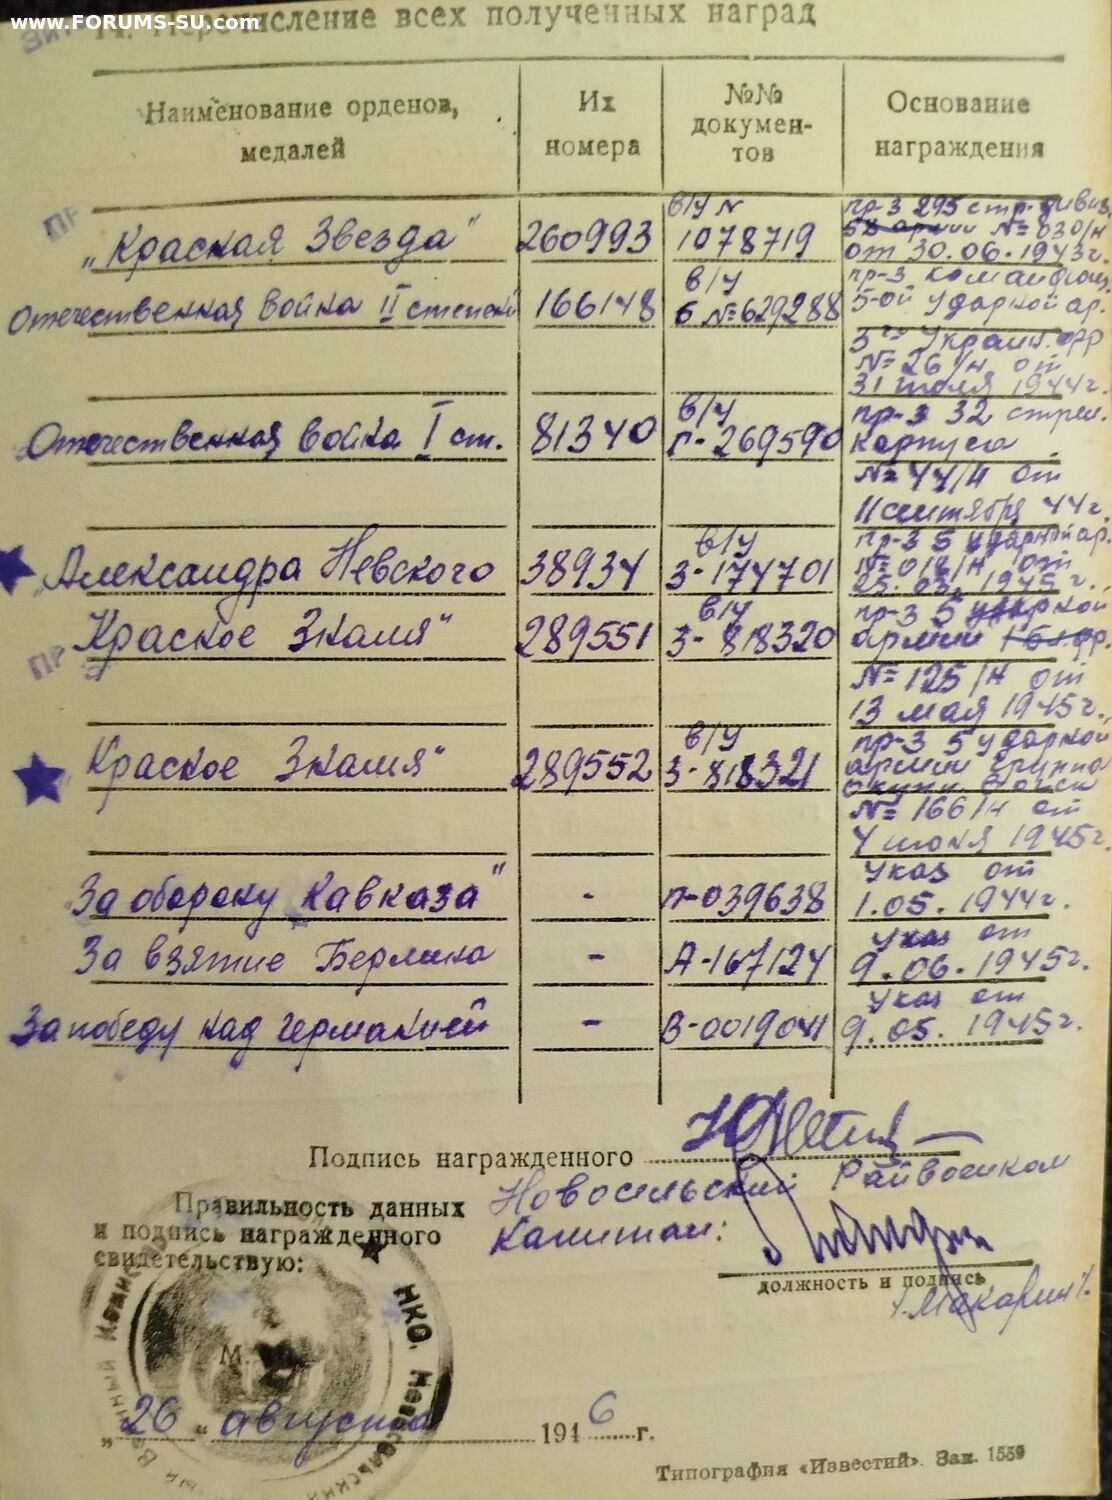 www.FORUMS-SU.com
14. Перечисление всех полученных наград
Наименование орденов, медалей
Их номера
№№ документов
Основание награждения
„Красная Звезда“ 260993 в/у N 1078719 пр-з 295 стр. дивиз. 58 армии №=030/н от 30.06.1943г.
Отечественная война II степени 166148 в/у Б №=629288 пр-з командующ. 5-ой ударной ар. 3го Украин. фр №=26/н от 31 июля 1944г.
Отечественная война I ст. 81340 в/у Г-269590 пр-з 32 стрел. корпуса №=44/н от 11 сентября 44г.
„Александра Невского 38934 в/у З-174701 пр-з 5 ударной ар. №=018/н от 25.03.1945г.
Красное Знамя“ 289551 в/у З-818320 пр-з 5 ударной армии 1 бел. фр. №=125/н от 13 мая 1945г.
„Красное Знамя“ 289552 в/у З-818321 пр-з 5 ударной армии группа оккуп. войск №=166/н от 4 июня 1945г.
„За оборону Кавказа“ - П-039638 Указ от 1.05.1944г.
За взятие Берлина - А-167124 Указ от 9.06.1945г.
За победу над Германией - В-0019041 Указ от 9.05.1945г.
Подпись награжденного
Правильность данных
и подпись награжденного
свидетельствую:
Новосильский Райвоенком
Капитан:
должность и подпись
/.Макарин/.
НКО.
М.
„26“ августа 1946 г.
Типография «Известий». Зак. 1559